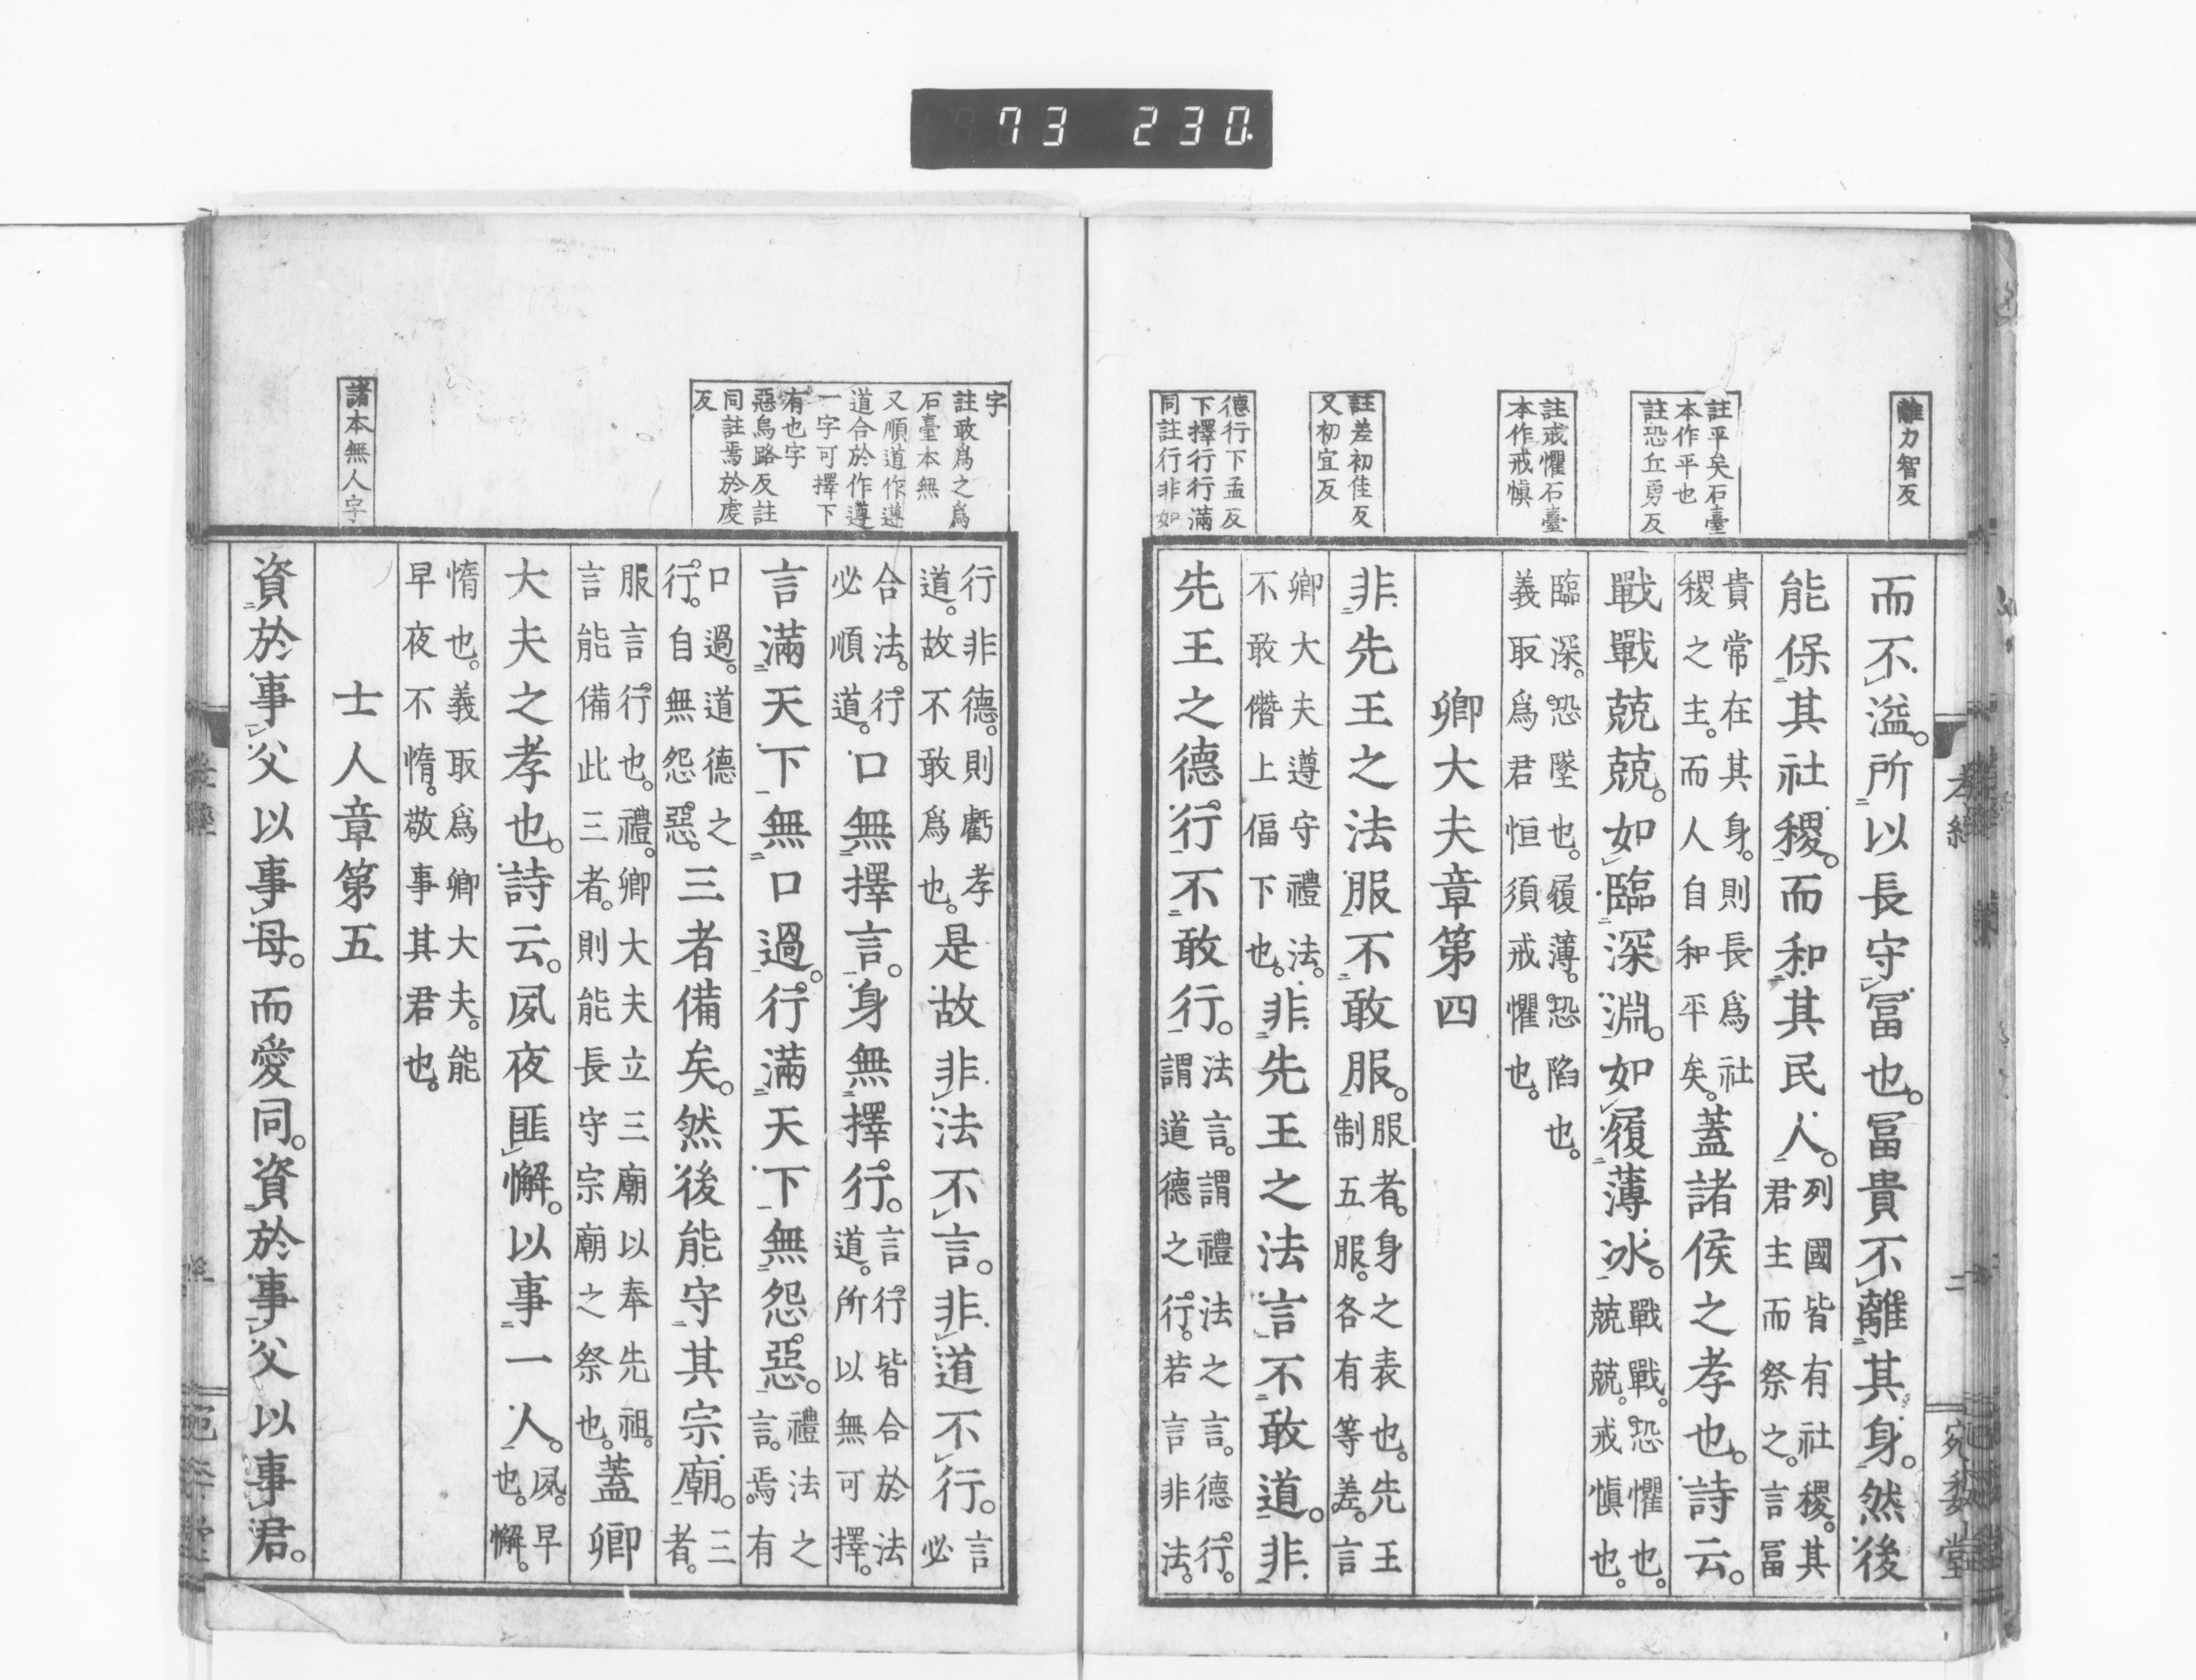 73 230.
離力智反
註平矣石臺
本作平也
註恐丘勇反
註戒懼石臺
本作戒愼
註差初佳反
又初宜反
德行下孟反
下擇行行滿
同註行非如
而不溢。所以長守冨也。冨貴不離其身。然後
能保其社稷。而和其民人。列國皆有社稷。其君主而祭之。言冨
貴常在其身。則長爲社稷之主。而人自和平矣。蓋諸侯之孝也。詩云。
戰戰兢兢。如臨深淵。如履薄冰。戰戰。恐懼也。兢兢。戒愼也。
臨深。恐墜也。履薄。恐陷也。義取爲君恒須戒懼也。
卿大夫章第四
非先王之法服不敢服。服者。身之表也。先王制五服。各有等差。言
卿大夫遵守禮法。不敢僭上偪下也。非先王之法言不敢道。非
先王之德行不敢行。法言。謂禮法之言。德行。謂道德之行。若言非法。
二
字
註敢爲之爲
石臺本無
又順道作遵
道合於作遵
一字可擇下
有也字
惡烏路反註
同註焉於虔
反
諸本無人字
行非德。則虧孝道。故不敢爲也。是故非法不言。非道不行。言必
合法。行必順道。口無擇言。身無擇行。言行皆合於法道。所以無可擇。
言滿天下無口過。行滿天下無怨惡。禮法之言。焉有
口過。道德之行。自無怨惡。三者備矣。然後能守其宗廟。三者。
服言行也。禮。卿大夫立三廟以奉先祖。言能備此三者。則能長守宗廟之祭也。蓋卿
大夫之孝也。詩云。夙夜匪懈。以事一人。夙。早也。懈。
惰也。義取爲卿大夫。能早夜不惰。敬事其君也。
士人章第五
資於事父以事母。而愛同。資於事父以事君。